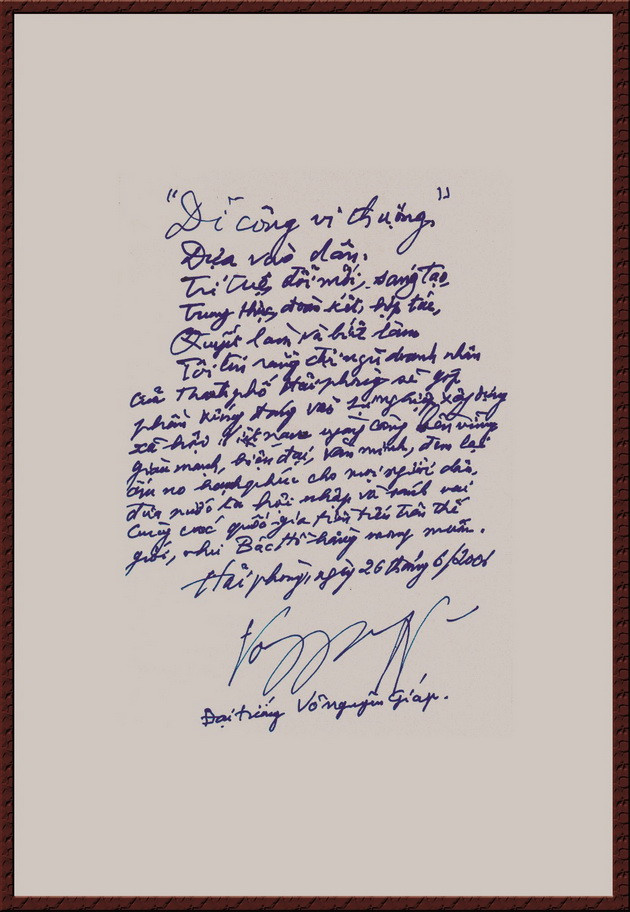 "Dĩ công vi thượng"
Dựa vào dân.
Trí tuệ, đổi mới, sáng tạo,
Trung thực, đoàn kết, hợp tác,
Quyết làm và biết làm
Tôi tin rằng đội ngũ doanh nhân
của Thành phố Hải phòng sẽ góp
phần xứng đáng vào sự nghiệp xây dựng
xã hội Việt nam ngày càng bền vững
giàu mạnh, hiện đại, văn minh, đem lại
ấm no hạnh phúc cho mọi người dân,
đưa nước ta hội nhập và sánh vai
cùng các quốc gia tiên tiến trên thế
giới, như Bác Hồ hằng mong muốn.
Hải phòng, ngày 26 tháng 6/2006
Đại tướng Võ nguyên Giáp.